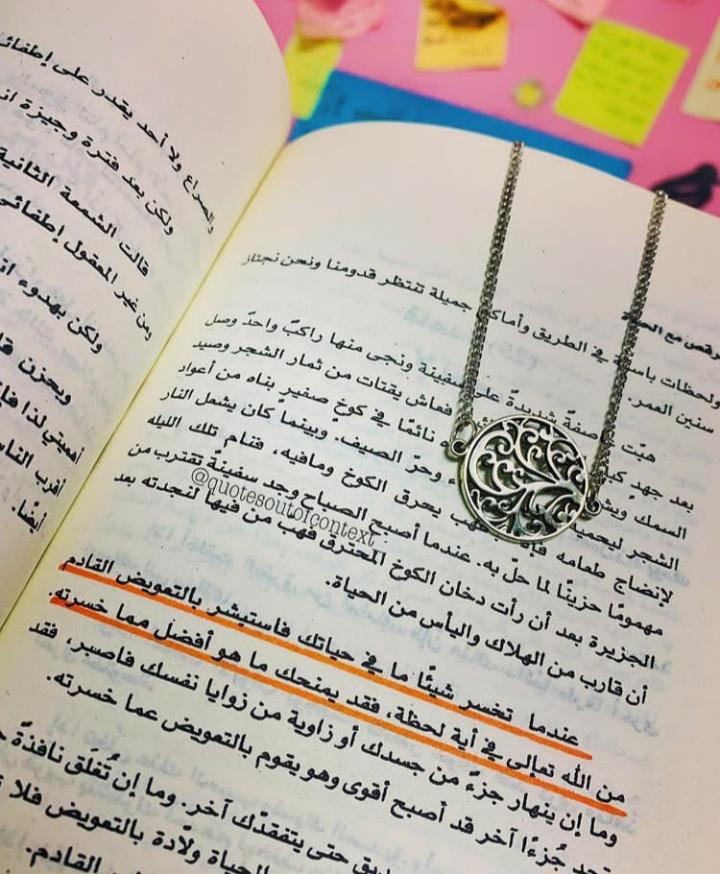 والصراع ولا أحد يقدر على إطفائي
ولكن بعد فترة وجيزة
قالت الشمعة الثانية
ومن غير المعقول إطفائي
ولكن بهدوء
وبحزن
أهميتي لذا
أقرب الناس
أيضًا.
نرقص مع الحياة
ولحظات في الطريق وأماكن جميلة تنتظر قدومنا ونحن نجتاز
سنين العمر.
هبّت عاصفةٌ شديدةٌ على سفينة ونجى منها راكبٌ واحدٌ وصل
بعد جهد فعاش يقتات من ثمار الشجر وصيد
السمك نائمًا في كوخ صغيرٍ بناه من أعواد
الشجر ليحميه وحرّ الصيف. وبينما كان يشعل النار
لإنضاج طعامه يحرق الكوخ ومافيه، فنام تلك الليله
مهمومًا حزينًا لما حلّ به. عندما أصبح الصباح وجد سفينةً تقترب من
الجزيرة بعد أن رأت دخان الكوخ المحترق فهب من فيها لنجدته بعد
أن قارب من الهلاك واليأس من الحياة.
@quotesoutofcontext
عندما تخسر شيئًا ما في حياتك فاستبشر بالتعويض القادم
من الله تعالى في أية لحظة، فقد يمنحك ما هو أفضل مما خسرته.
وما إن ينهار جزءٌ من جسدك أو زاوية من زوايا نفسك فاصبر، فقد
تجد جُزءًا آخر قد أصبح أقوى وهو يقوم بالتعويض عما خسرته.
حتى يتفقدّك آخر. وما إن تُغلَق نافذةٌ
الحياة ولّادة بالتعويض فلا
القادم.